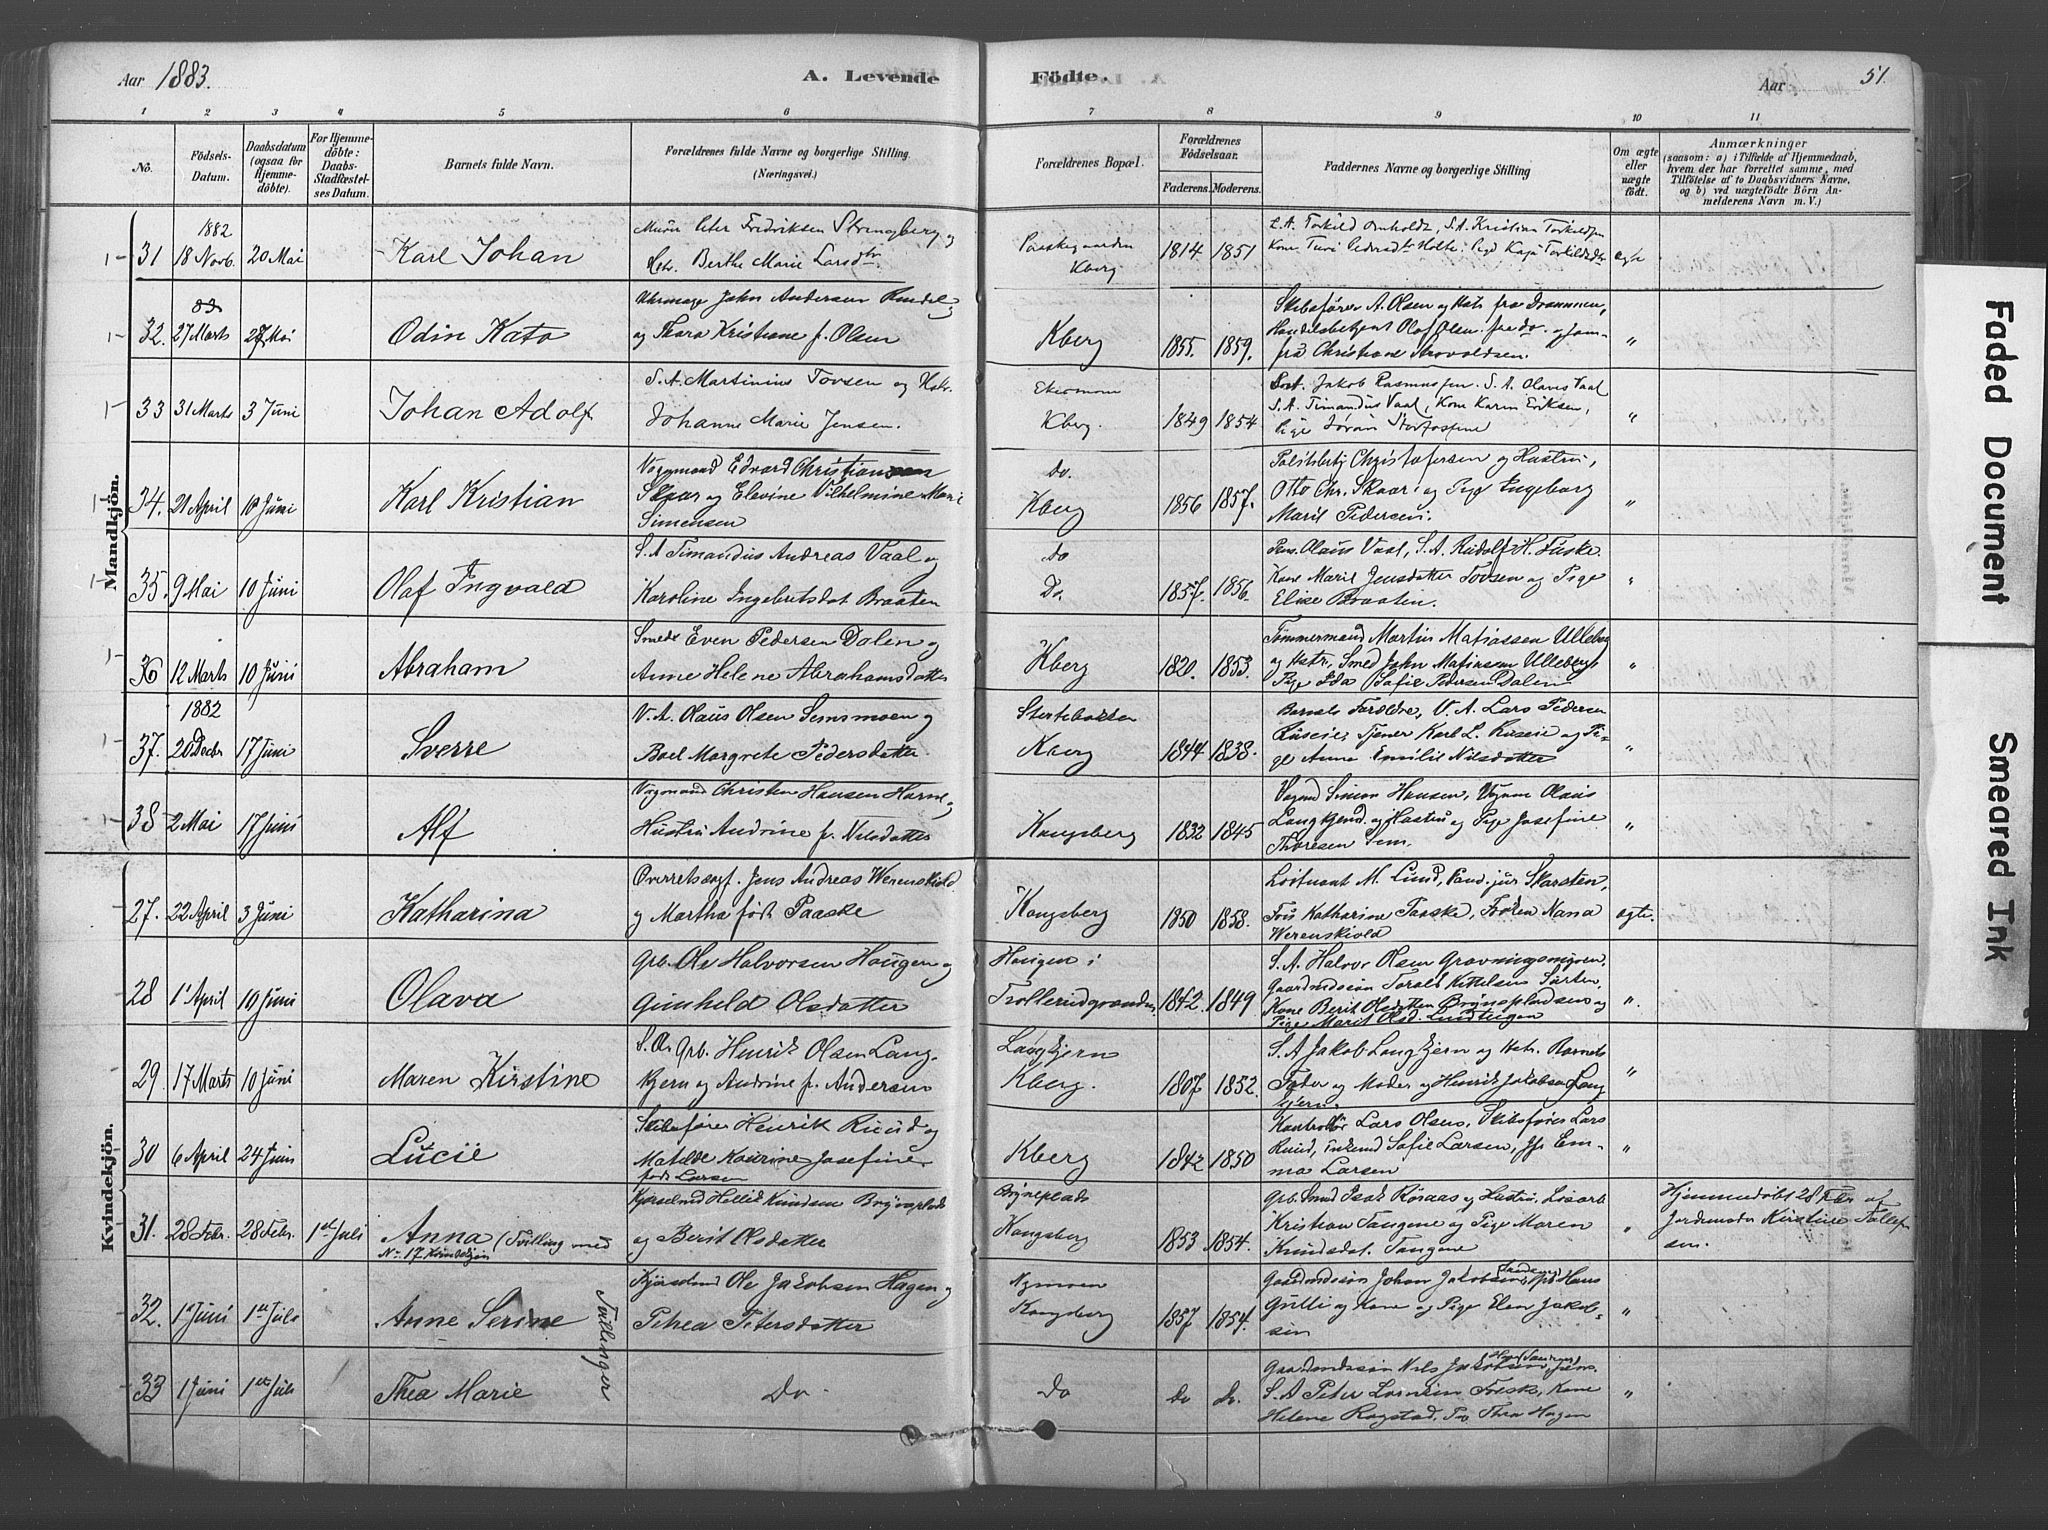 Aar 1883. A. Levende Födte. Aar 51.
1 2 3 4 5 6 7 8 9 10 11
No. Födsels-Datum. Daabsdatum (ogsaa for Hjemmedöbte). For Hjemmedöbte: Daabs-Stadfæstelses Datum. Barnets fulde Navn. Forældrenes fulde Navne og borgerlige Stilling. (Næringsvei.) Forældrenes Bopæl. Forældrenes Födselsaar. Faderens. Moderens. Faddernes Navne og borgerlige Stilling Om ægte eller uægte födt. Anmærkninger (saasom: a) i Tilfælde af Hjemmedaab, hvem der har forrettet samme, med Tilföielse af to Daabsvidners Navne, og b) ved uægtefödte Börn Anmelderens Navn m. V.)
Mandkjön.
1882
31 18 Novb. 20 Mai Karl Johan Murer Peter Fredriksen Strengberg og
Hstr. Berthe Marie Larsdtr. Kberg 1814 1851 ægte
83
32. 27 Marts Mai Odin Kato Uhrmager John Andersen
og Thora Kristiane f. Olsen Kberg 1855. 1859. Skibsförer A. Olsen og Hstr fra Drammen,
Handelsbetjent Olaf Olsen fra do. og Jom-
fru Christiane Arvoldsen. "
33 31 Marts 3 Juni Johan Adolf S. A. Martinius Tovsen og Hstr.
Johanne Marie Jensen. Kberg. 1849 1854 Jakob Rasmussen. S. A. Olaves Vaal
S. A. Timandus Vaal, Kone Karen Eriksen,
Pige "
34. 21 April 10 Juni Karl Kristian Vognmand Edvard Christiansen
Skaar og Elevine Vilhelmine Marie
Simensen Do. Kberg 1856 1857. Politibetj Christofersen og Hustru,
Otto Chr. Skaar og Pige Ingeborg
Maril Pedersen. "
35. 9 Mai 10 Juni Olaf Ingvald S. A Timandus Andreas Vaal og
Karoline Ingebretsdat Braaten Do Do. 1857. 1856. Olaus Vaal, S. A. Rudolf H. Fuske
Kone Maril Jensdatter Tovsen og Pige
Elise Braaten. "
36 12 Marts 10 Juni Abraham Smed Even Pedersen Dalen og
Anne Helene Abrahamsdatter Kberg 1820. 1853. Tömmermand Martin Matiassen Ulleberg
og Hstr, Smed John Matiassen Ulleberg
Pige Ida Sofie Pedersen Dalen "
1882
37. 20 Decbr 17 Juni Sverre V. A. Olaus Olsen Semsmoen og
Boel Margrete Pedersdatter Kberg 1844 1838. Barnets Forældre, V. A. Lars Pedersen
Tjener Karl L. og Pi-
ge Anna Emilie Nilsdatter "
38 2 Mai 17 Juni Alf Vognmand Christen Hansen Horne og
Hustru Andrine f. Nilsdatter Kongsberg 1832 1845 Simon Hansen, Olaus
Langkjend og Hustru og Pige Josefine
Thoresen Sem. "
Kvindekjön.
27. 22 April 3 Juni Katharina Overretssagf. Jens Andreas Werenskiold
og Martha född Paaske Kongsberg 1850 1858. Löitnant M. Lund, Cand. jur Skarsten,
Frk Katharine Paaske, Fröken Nana
Werenskiold ægte.
28 1' April 10 Juni Olava Grb. Ole Halvorsen Haugen og
Gunhild Olsdatter Haugen i
Trollerudgrænden 1842. 1849 S. A. Halvor Olsen Gravningsmyren,
Gaardmdssön Torals Kittelsen
Kone Berit Olsdatter Brynspladsen og
Pige Marit Olsd. "
29. 17 Marts 10 Juni Maren Kirstine S. Ar. Grb. Henrik Olsen Lang-
kjern og Andrine f. Andersen Langkjern
Kberg. 1807 1852. S. A Jakob Langkjern og Hstr. Barnets
Fader og Moder og Henrik Jakobsen Lang
kjern. "
30 6 April 24 Juni Lucie Skibsförer Henrik Ruud og
Matilde Kaurine Josefine
födt Larsen Kberg 1842 1850 Kontrollör Lars Olsen, Skibsförer Lars
Ruud, Sofie Larsen, Em-
ma Larsen "
31. 28 Febr. 28 Febr. 1st Juli Anna (Tvilling med
No 17 Kvindekjön Hellik Knudsen Brynsplads
og Berit Olsdatter Brynsplads
Kongsberg 1853 1854. Grb. Isak Röraas og Hustru,
Kristian Tangene og Pige Maren
Knudsdat. Tangene " Hjemmedöbt 28 Febr af
Jordemoder Kirstine Tollef-
sen.
32. 1 Juni 1st Juli Anne Serine Ole Jakobsen Hagen og
Pethea Petersdatter Nymoen
Kongsberg 1857 1854. Gaardmdssön Johan Jakobsen, Hans
Gulli og Kone og Pige Elen Jakob-
sen "
Tvillinger
33 1 Juni 1st Juli Thea Marie Do Do Do Do. Gaardmdssön Nils Jakobsen,
S. A Peter Kone
Helene Rogstad, Thea Hagen "
Faded Document
Smeared Ink